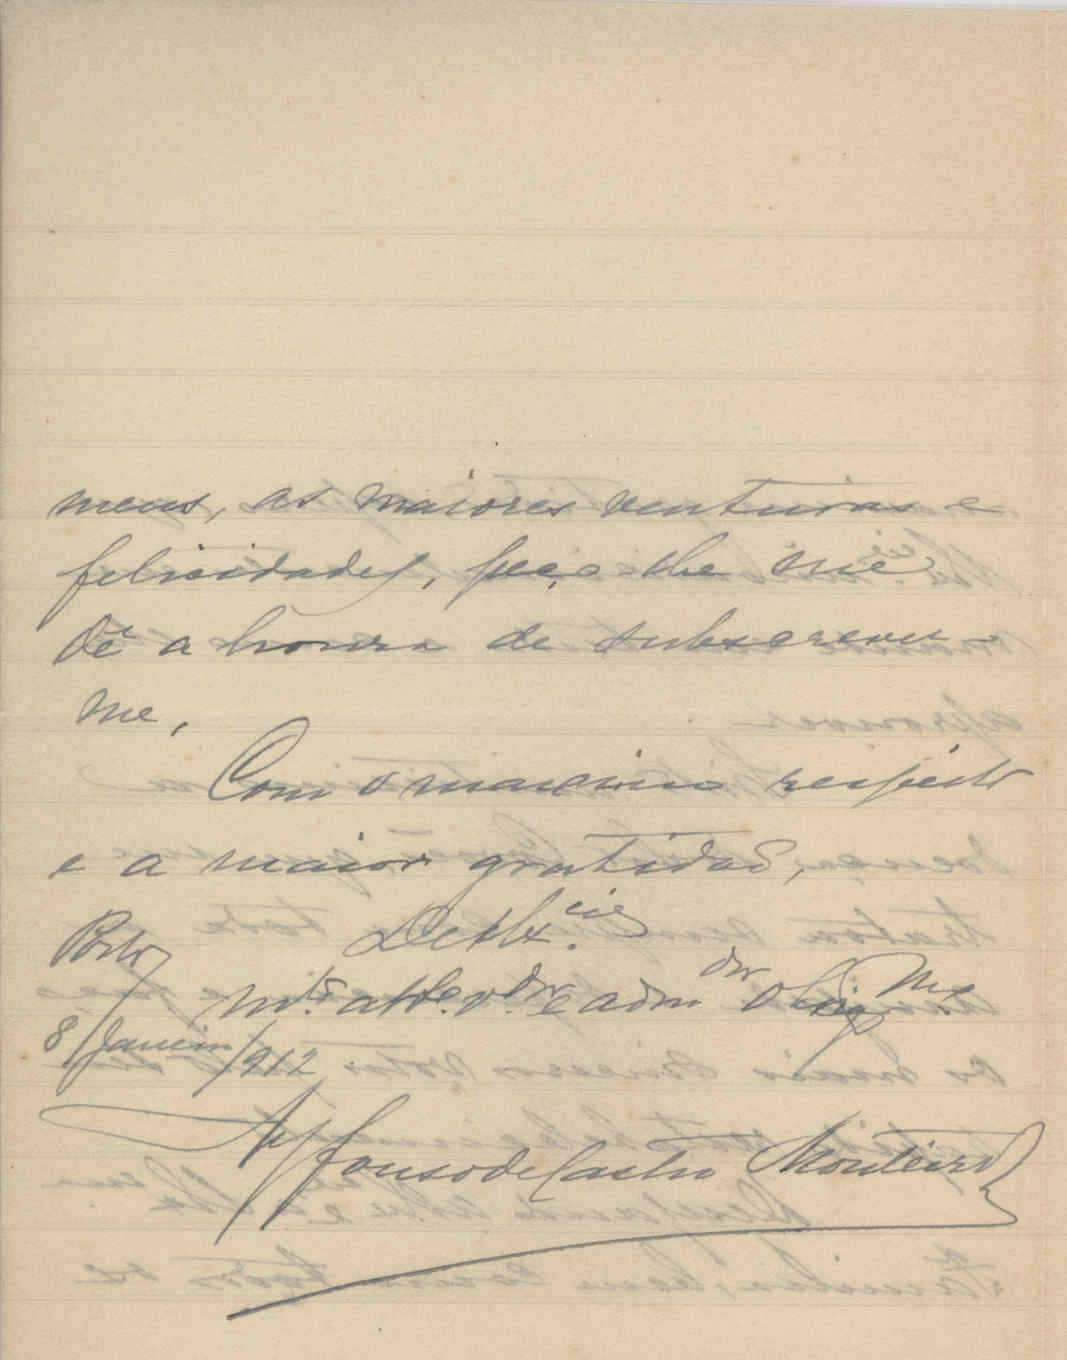 meus, as maiores venturas e
felicidades, peço-lhe me
dê a honra de subscrever-
me,
Com o maximo respeito
e a maior gratidão,
De V. Ex.cia
Porto
m.to att.e v.dor e adm.dor obrig.mo
8/Janeiro/912
Affonso de Castro Monteiro